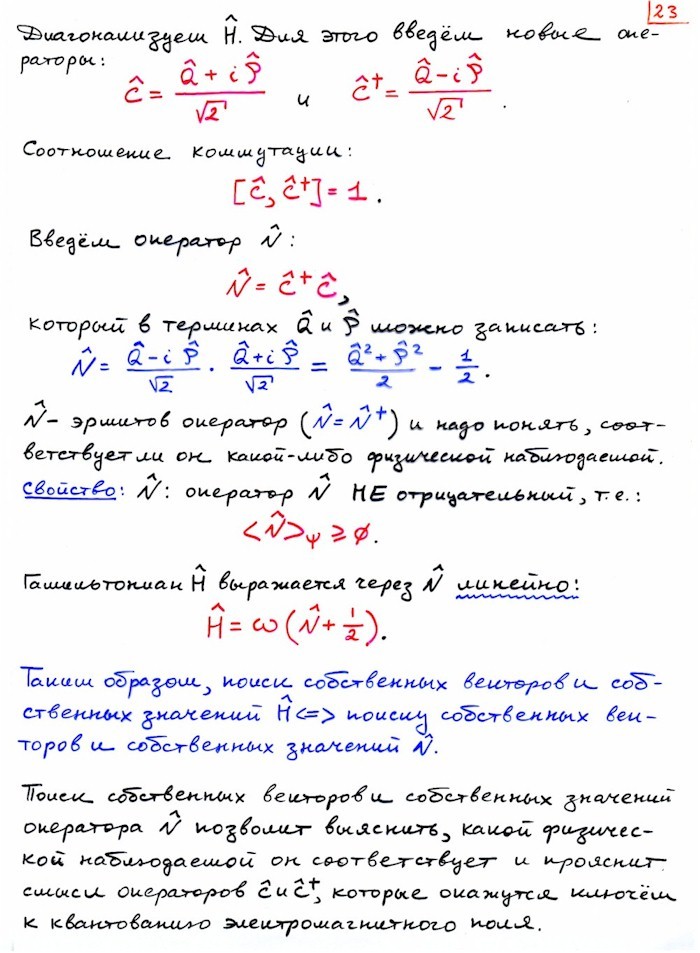 23
Диагонализуем Ĥ. Для этого введём новые опе-
раторы:
ĉ = (Q̂ + i P̂)/√2 и ĉ⁺ = (Q̂ - i P̂)/√2 .
Соотношение коммутации:
[ĉ, ĉ⁺] = 1 .
Введём оператор N̂ :
N̂ = ĉ⁺ ĉ,
который в терминах Q̂ и P̂ можно записать:
N̂ = (Q̂ - i P̂)/√2 · (Q̂ + i P̂)/√2 = (Q̂² + P̂²)/2 - 1/2 .
N̂ - эрмитов оператор (N̂ = N̂⁺) и надо понять, соот-
ветствует ли он какой-либо физической наблюдаемой.
Свойство: N̂ : оператор N̂ НЕ отрицательный, т.е.:
<N̂>ψ ≥ 0.
Гамильтониан Ĥ выражается через N̂ линейно:
Ĥ = ω (N̂ + 1/2).
Таким образом, поиск собственных векторов и соб-
ственных значений Ĥ <=> поиску собственных век-
торов и собственных значений N̂.
Поиск собственных векторов и собственных значений
оператора N̂ позволит выяснить, какой физичес-
кой наблюдаемой он соответствует и прояснит
смысл операторов ĉ и ĉ⁺, которые окажутся ключём
к квантованию электромагнитного поля.